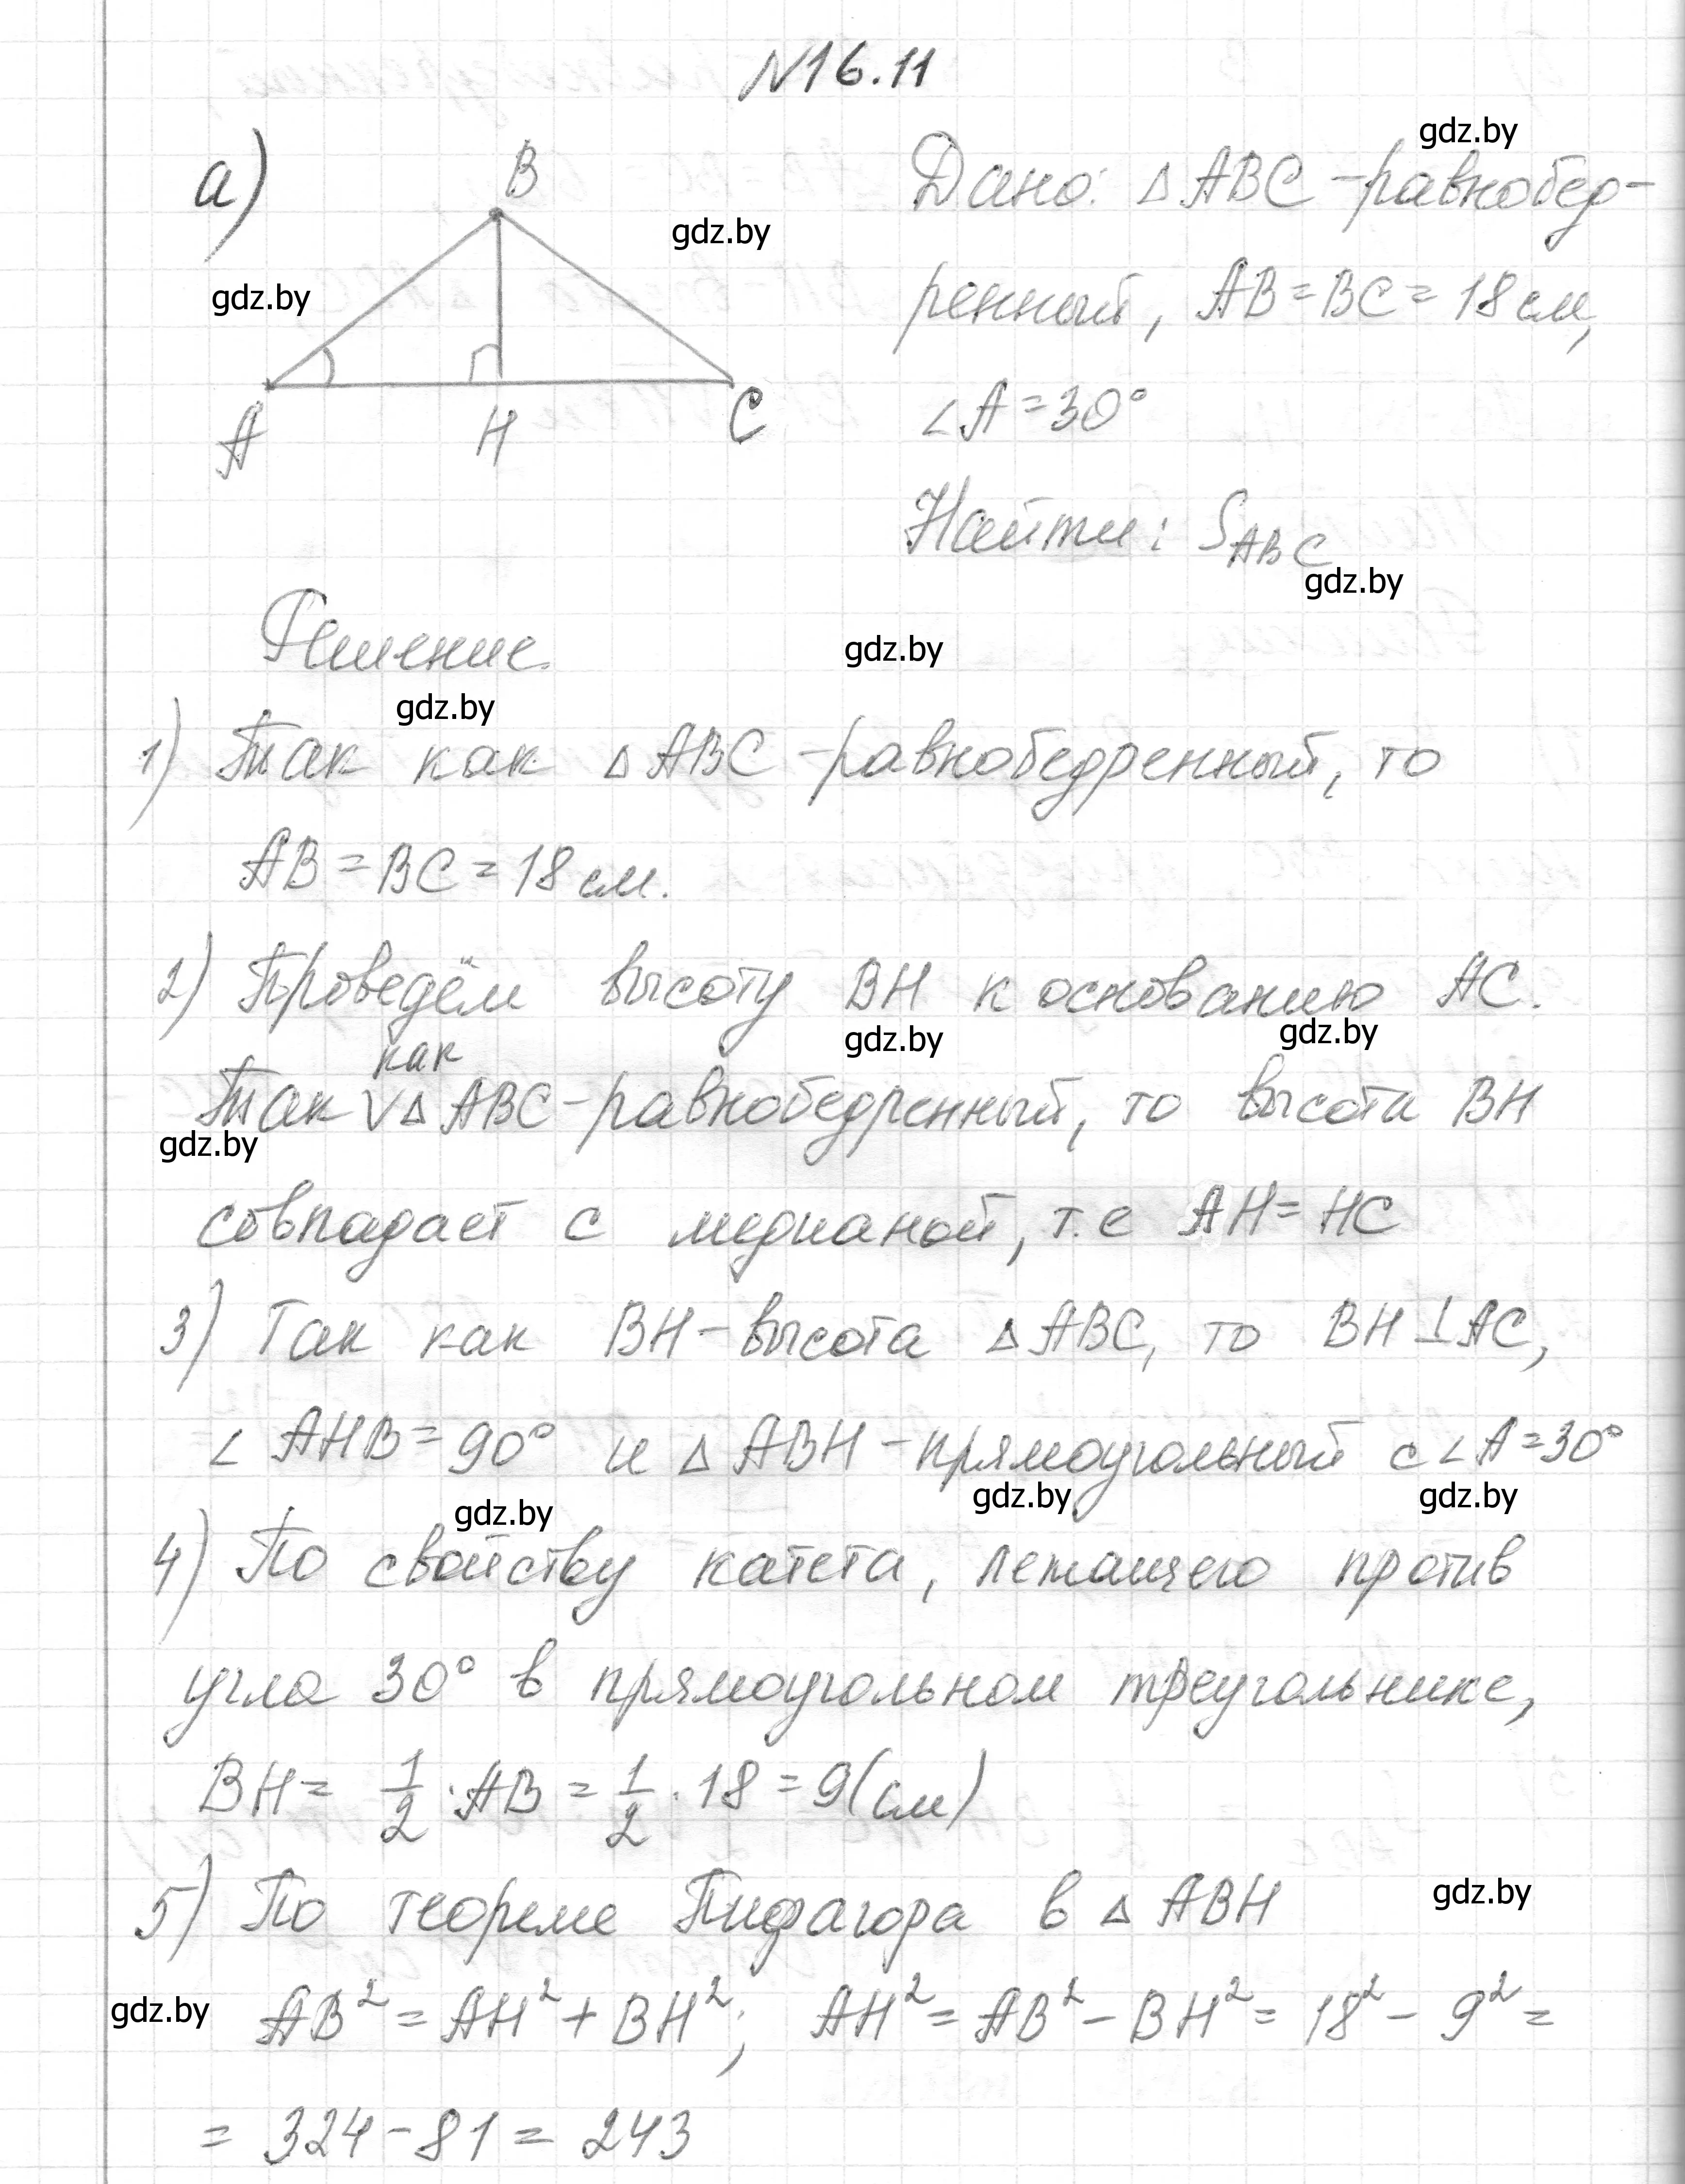 №16.11
а)
B
A
H
C
gdz.by
gdz.by
gdz.by
Дано: △ABC - равнобер-
ренный, AB = BC = 18 см,
∠A = 30°
Найти: S ABC
gdz.by
Решение.
gdz.by
gdz.by
1) Так как △ABC - равнобедренный, то
AB = BC = 18 см.
2) Проведём высоту BH к основанию AC.
gdz.by
gdz.by
как
Так V △ABC - равнобедренный, то высота BH
gdz.by
совпадает с медианой, т.е AH = HC
3) Так как BH - высота △ABC, то BH ⊥ AC,
∠AHB = 90° и △ABH - прямоугольный с ∠A = 30°
gdz.by
gdz.by
gdz.by
4) По свойству катета, лежащего против
угла 30° в прямоугольном треугольнике,
BH = 1/2 · AB = 1/2 · 18 = 9 (см)
5) По теореме Пифагора в △ABH
gdz.by
gdz.by
AB² = AH² + BH²; AH² = AB² - BH² = 18² - 9² =
= 324 - 81 = 243